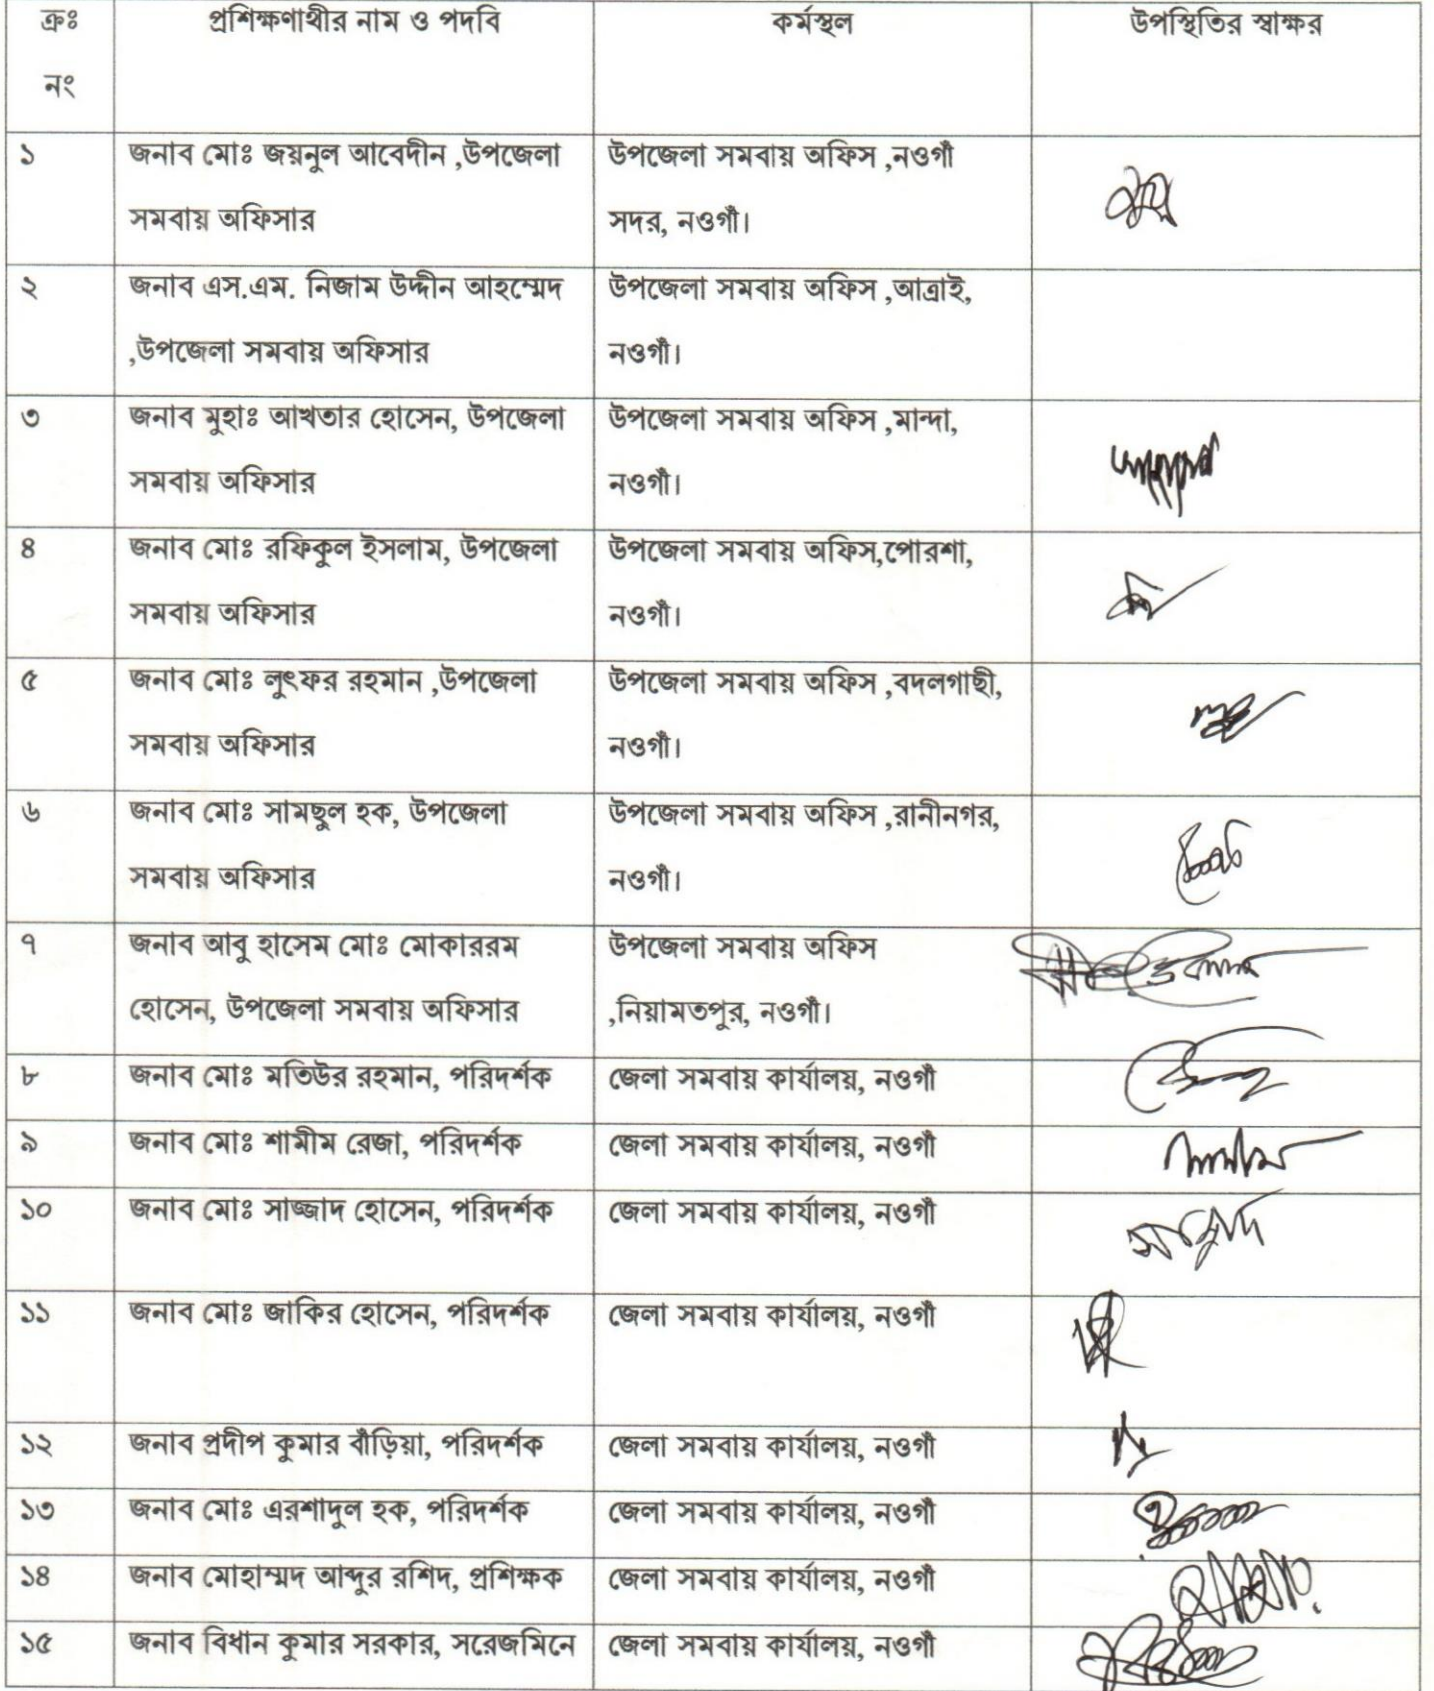 ক্রঃ প্রশিক্ষণাথীর নাম ও পদবি কর্মস্থল উপস্থিতির স্বাক্ষর
নং
১ জনাব মোঃ জয়নুল আবেদীন ,উপজেলা উপজেলা সমবায় অফিস ,নওগাঁ
সমবায় অফিসার সদর, নওগাঁ।
২ জনাব এস.এম. নিজাম উদ্দীন আহম্মেদ উপজেলা সমবায় অফিস ,আত্রাই,
,উপজেলা সমবায় অফিসার নওগাঁ।
৩ জনাব মুহাঃ আখতার হোসেন, উপজেলা উপজেলা সমবায় অফিস ,মান্দা,
সমবায় অফিসার নওগাঁ।
৪ জনাব মোঃ রফিকুল ইসলাম, উপজেলা উপজেলা সমবায় অফিস,পোরশা,
সমবায় অফিসার নওগাঁ।
৫ জনাব মোঃ লুৎফর রহমান ,উপজেলা উপজেলা সমবায় অফিস ,বদলগাছী,
সমবায় অফিসার নওগাঁ।
৬ জনাব মোঃ সামছুল হক, উপজেলা উপজেলা সমবায় অফিস ,রানীনগর,
সমবায় অফিসার নওগাঁ।
৭ জনাব আবু হাসেম মোঃ মোকাররম উপজেলা সমবায় অফিস
হোসেন, উপজেলা সমবায় অফিসার ,নিয়ামতপুর, নওগাঁ।
৮ জনাব মোঃ মতিউর রহমান, পরিদর্শক জেলা সমবায় কার্যালয়, নওগাঁ
৯ জনাব মোঃ শামীম রেজা, পরিদর্শক জেলা সমবায় কার্যালয়, নওগাঁ
১০ জনাব মোঃ সাজ্জাদ হোসেন, পরিদর্শক জেলা সমবায় কার্যালয়, নওগাঁ
১১ জনাব মোঃ জাকির হোসেন, পরিদর্শক জেলা সমবায় কার্যালয়, নওগাঁ
১২ জনাব প্রদীপ কুমার বাঁড়িয়া, পরিদর্শক জেলা সমবায় কার্যালয়, নওগাঁ
১৩ জনাব মোঃ এরশাদুল হক, পরিদর্শক জেলা সমবায় কার্যালয়, নওগাঁ
১৪ জনাব মোহাম্মদ আব্দুর রশিদ, প্রশিক্ষক জেলা সমবায় কার্যালয়, নওগাঁ
১৫ জনাব বিধান কুমার সরকার, সরেজমিনে জেলা সমবায় কার্যালয়, নওগাঁ